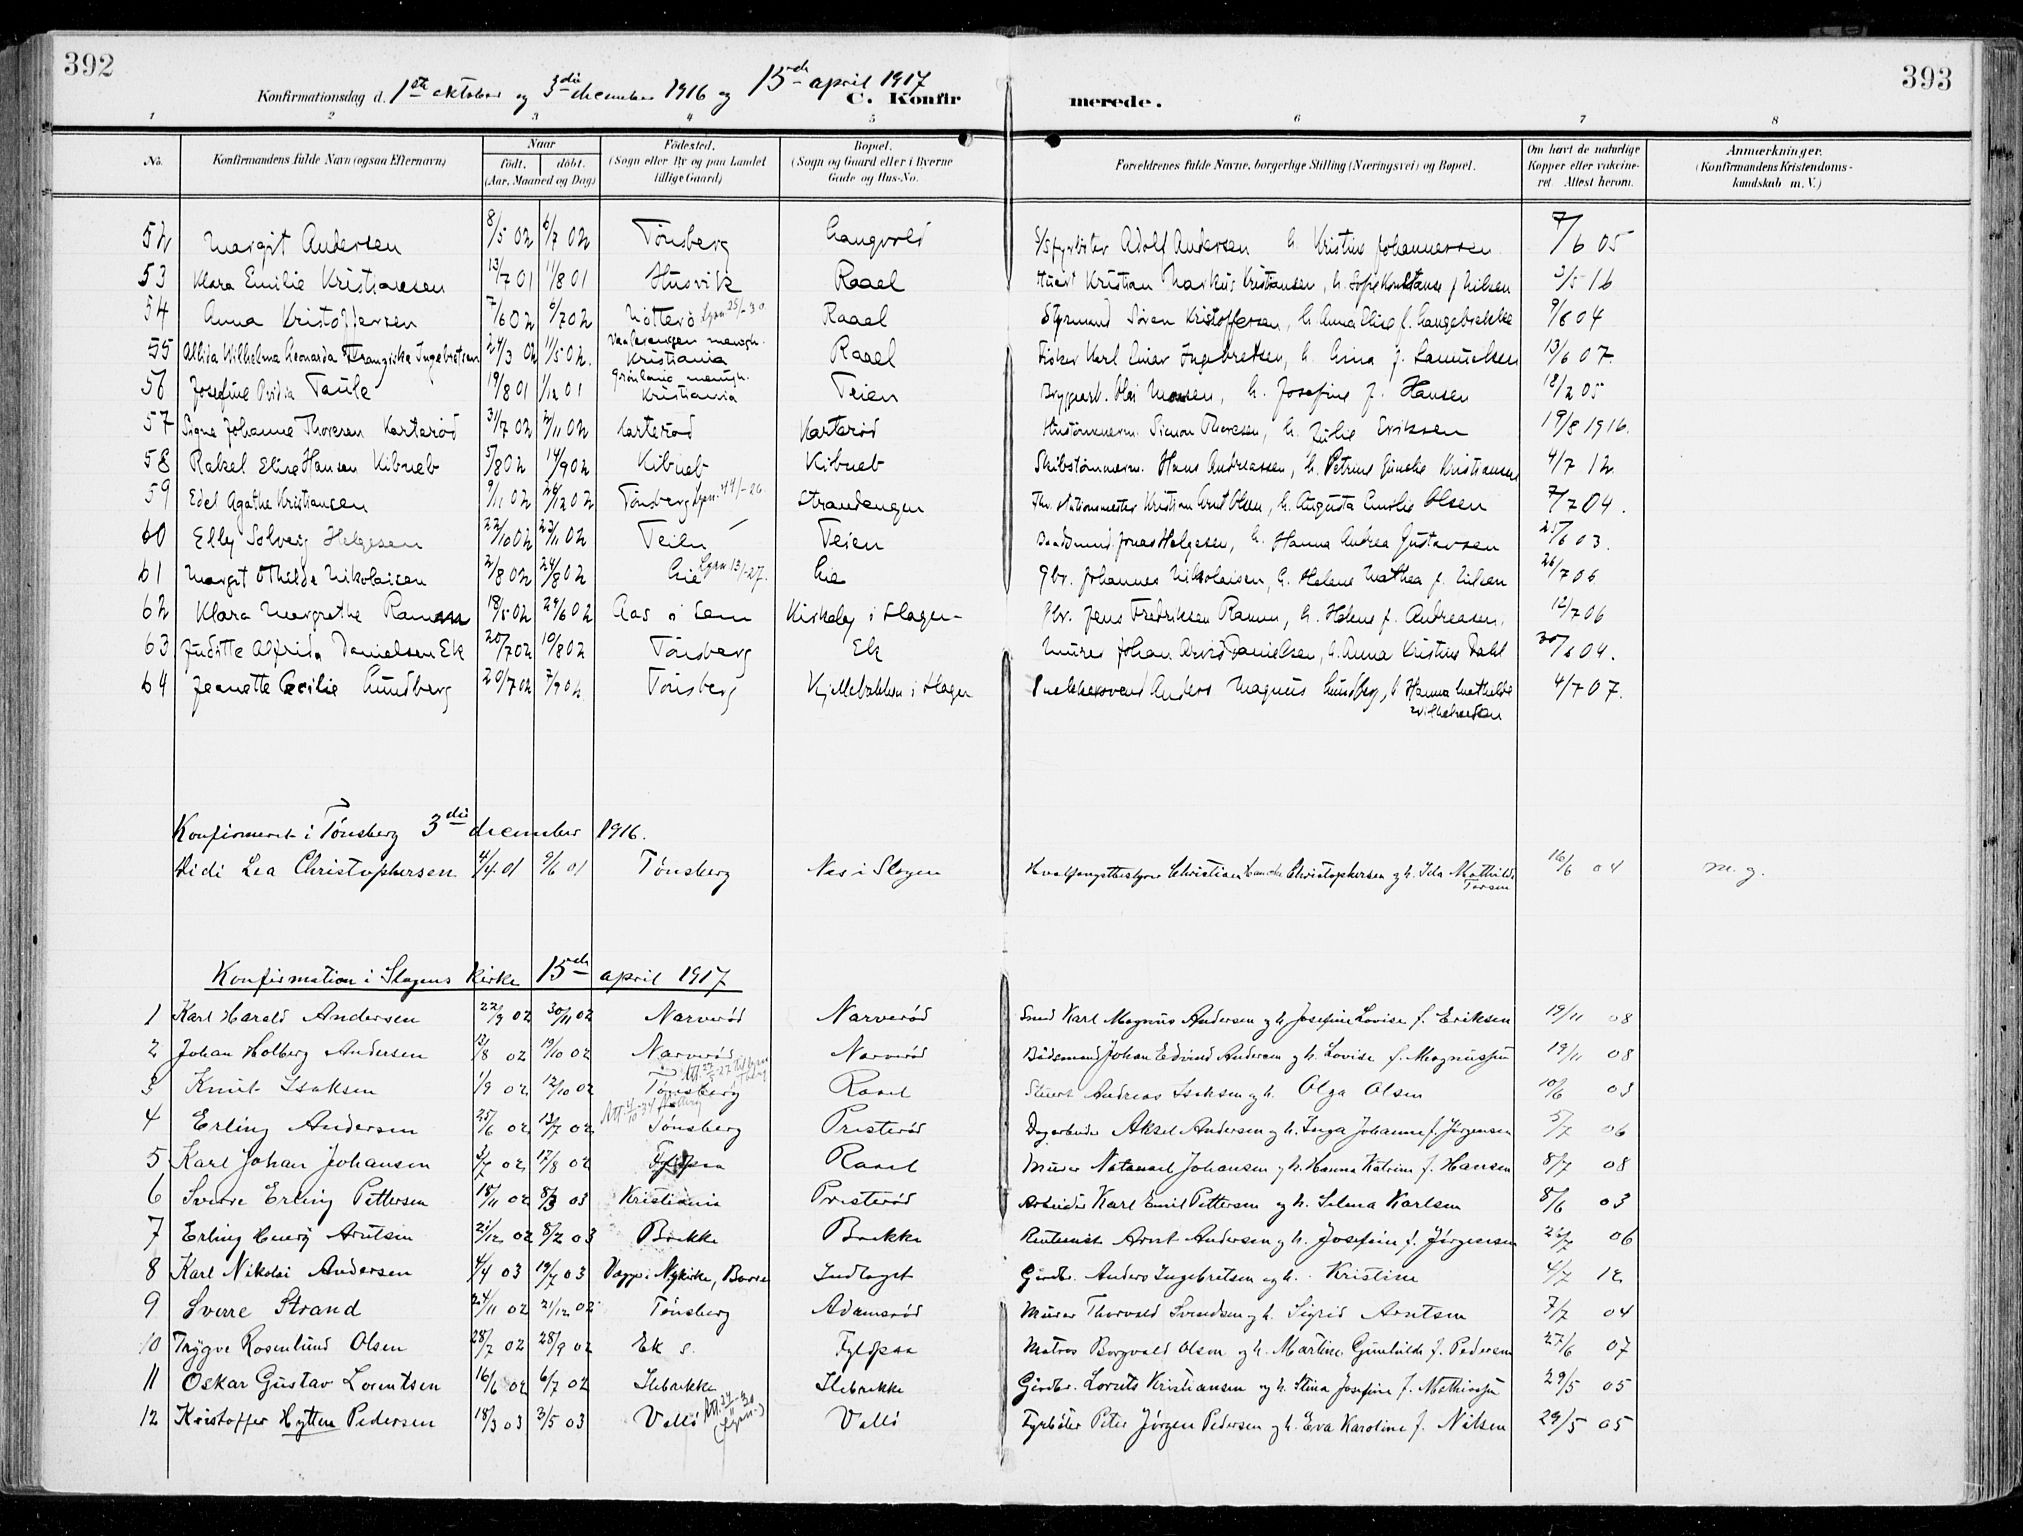 392
393
Konfirmationsdag d. 1ste oktober og 3die december 1916 og 15de april 1917
C. Konfirmerede.
1 2 3 4 5 6 7 8
No. Konfirmandens fulde Navn (ogsaa Efternavn) Naar født. døbt. (Aar, Maaned og Dag) Fødested. (Sogn eller By og paa Landet tillige Gaard) Bopæl. (Sogn og Gaard eller i Byerne Gade og Hus-No. Forældrenes fulde Navne, borgerlige Stilling (Næringsvei) og Bopæl. Om havt de naturlige Kopper eller vaccineret. Attest herom. Anmærkninger. (Konfirmandens Kristendomskundskab m. V.)
52 Margit Andersen 8/5 02 6/7 02 Tønsberg Langvold S/Sfyrbøter Adolf Andersen h. Kristine Johannessen 7/6 05
53 Klara Emilie Kristiansen 13/7 01 11/8 01 Husvik Raael Stuert Kristian Markus Kristiansen, h. Sofie Konstanse f Nilsen 3/5 16
54 Anna Kristoffersen 7/6 02 6/7 02 Nøtterø Raael Styrmand Søren Kristoffersen, h. Anna Elise f. Langebrekke 9/6 04
55 Alfida Vilhelma Leonarda Franziska Ingebretsen 24/3 02 11/5 02. Vaalerengen menigh. Kristiania Raael Fisker Karl Einar Ingebretsen, h. Gina f. Samuelsen 13/6 07.
56 Josefine Ovidia Taule 19/8 01 1/12 01 Grønland menigh. Kristiania Teien Bryggearb. Olai Monsen, h. Josefine f. Hansen 18/2 05
57 Signe Johanne Thoresen Karterød 31/7 02 2/11 02 Karterød Karterød Hustømmerm. Simon Thoresen, h. Julie Eriksen 19/8 1916.
58 Rakel Elise Hansen Kibneb 5/8 02 14/9 02 Kibneb Kibneb Skibstømmerm. Hans Andreassen, h. Petrine Gineke Kristiansen 4/7 12.
59 Edel Agathe Kristiansen 9/11 02 26/12 02 Tønsberg Strandengen Fhv. stationsmester Kristian Arnt Olsen, h. Augusta Emilie Olsen 7/7 04.
60 Elly Solveig Helgesen 22/10 02 23/11 02 Teien Teien Baadsmd. Jonas Helgesen, h. Hanna Andrea Gustavsen 25/6 03.
61 Margit Othilde Nikolaisen 2/8 02 24/8 02 Lie Lie Gbr. Johannes Nikolaisen, h. Helene Mathea f. Nilsen 26/7 06
62 Klara Margrethe Ramm 18/5 02 29/6 02 Aas i Sem Kirkeby i Slagen Gbr. Jens Fredriksen Ramm, h. Helene f. Andreasen. 12/7 06
63 Juditte Alfrida Danielsen Ek 20/7 02 10/8 02 Tønsberg Ek Murer Johan Arvid Danielsen, h. Anna Kristine Dahl 30/6 04.
64 Jeanette Cecilie Lundberg 20/7 02 7/9 02 Tønsberg Kjellebakken i Slagen Snekkersvend Anders Magnus Lundberg, h Hanna Mathilde Vilhelmsen 4/7 07.
Konfirmeret i Tønsberg 3die december 1916.
Didi Lea Christophersen 4/4 01 9/6 01 Tønsberg Nes i Slagen Hvalfangstbestyrer Christian Christophersen og h. Ida Mathilde 16/6 04 m. g.
Konfirmation i Slagens kirke 15de april 1917
1 Karl Harald Andersen 22/9 02 30/11 02 Narverød Narverød Smed Karl Magnus Andersen og h. Josefine Lovise f. Eriksen 19/11 08
2 Johan Holberg Andersen 12/8 02 19/10 02 Narverød Narverød Bådsmand Johan Edvind Andersen og h. Lovise f. Magnussen 19/11 08
3 Knut Isaksen 1/9 02 12/10 02 Tønsberg Raael Stuert Andreas Isaksen og h. Olga Olsen 10/6 03
4 Erling Andersen 25/6 02 13/7 02 Tønsberg Presterød Dagarbeider Aksel Andersen og h. Inga Johanne f. Jørgensen 5/7 06
5 Karl Johan Johansen 3/7 02 17/8 02 Raael Murer Natanael Johansen og h. Hanna Katrine f. Hansen 8/7 08
6 Sverre Erling Pettersen 18/11 02 8/3 03 Kristiania Presterød Arbeider Karl Emil Pettersen og h. Selma Karlsen 8/6 03
7 Erling Henry Arntsen 21/12 02 8/2 03 Bakke Bakke Arnt Andersen og h. Josefine f. Jørgensen 23/7 06
8 Karl Nikolai Andersen 4/4 03 19/7 03 Nykirke, Borre Indlaget Gårdbr. Anders Ingebretsen og h. Kristine 4/7 12
9 Sverre Strand 24/11 02 21/12 02 Tønsberg Adamsrød Murer Thorvald Svendsen og h. Sigrid Arntsen 7/7 04
10 Trygve Rosenlund Olsen 28/7 02 28/9 02 Ek s. Fyldpaa Matros Borgvald Olsen og h. Martine Gunhilde f. Pedersen 27/6 07
11 Oskar Gustav Lorentsen 16/6 02 6/7 02 Ilebrekke Ilebrekke Gårdbr. Lorents Kristiansen og h. Stina Josefine f. Mathiassen 29/5 05
12 Kristoffer Hytten Pedersen 18/3 03 3/5 03 Vallø Vallø Fyrbøter Peter Jørgen Pedersen og h. Eva Karoline f. Nilsen 29/5 05